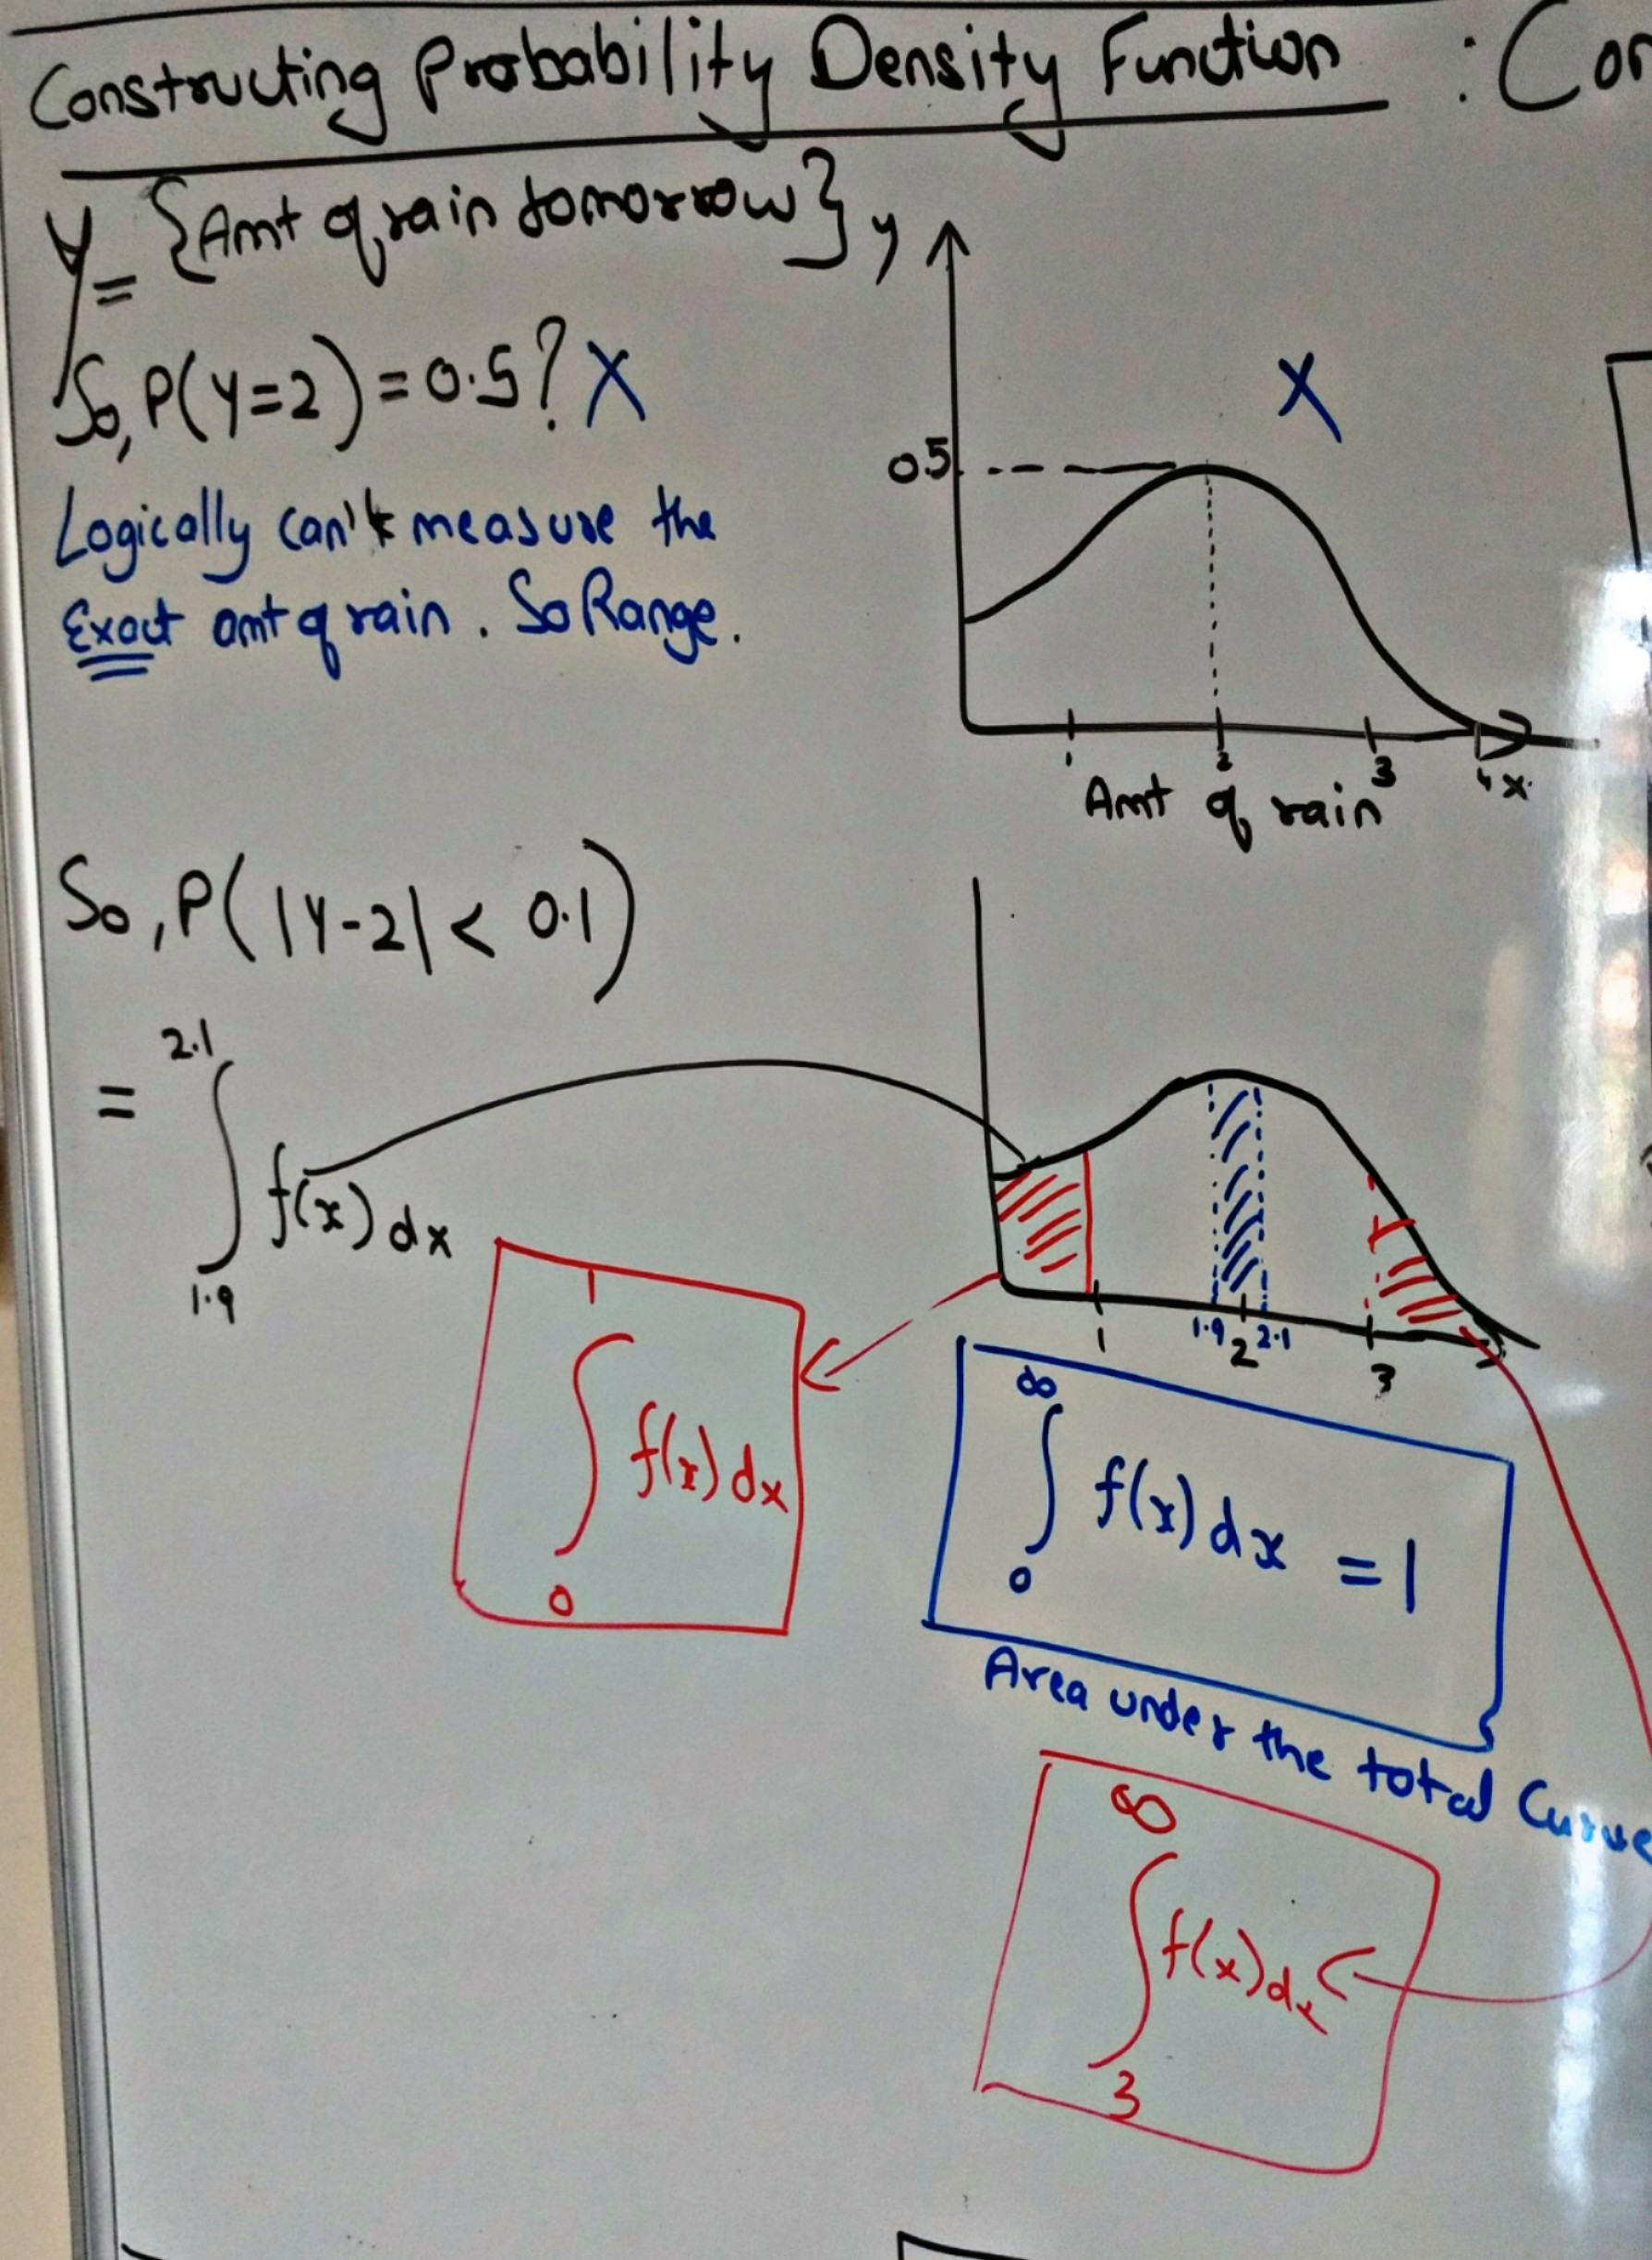 Constructing Probability Density Function : Con
Y = {Amt of rain tomorrow}
So, P(Y=2) = 0.5? X
Logically can't measure the
Exact amt of rain. So Range.
y
X
0.5
1 2 3 4 x
Amt of rain
So, P(|Y-2| < 0.1)
= ∫ 2.1 1.9 f(x) dx
1 1.9 2 2.1 3
∫ 1 0 f(x) dx
∫ ∞ 0 f(x) dx = 1
Area under the total Curve
∫ ∞ 3 f(x) dx